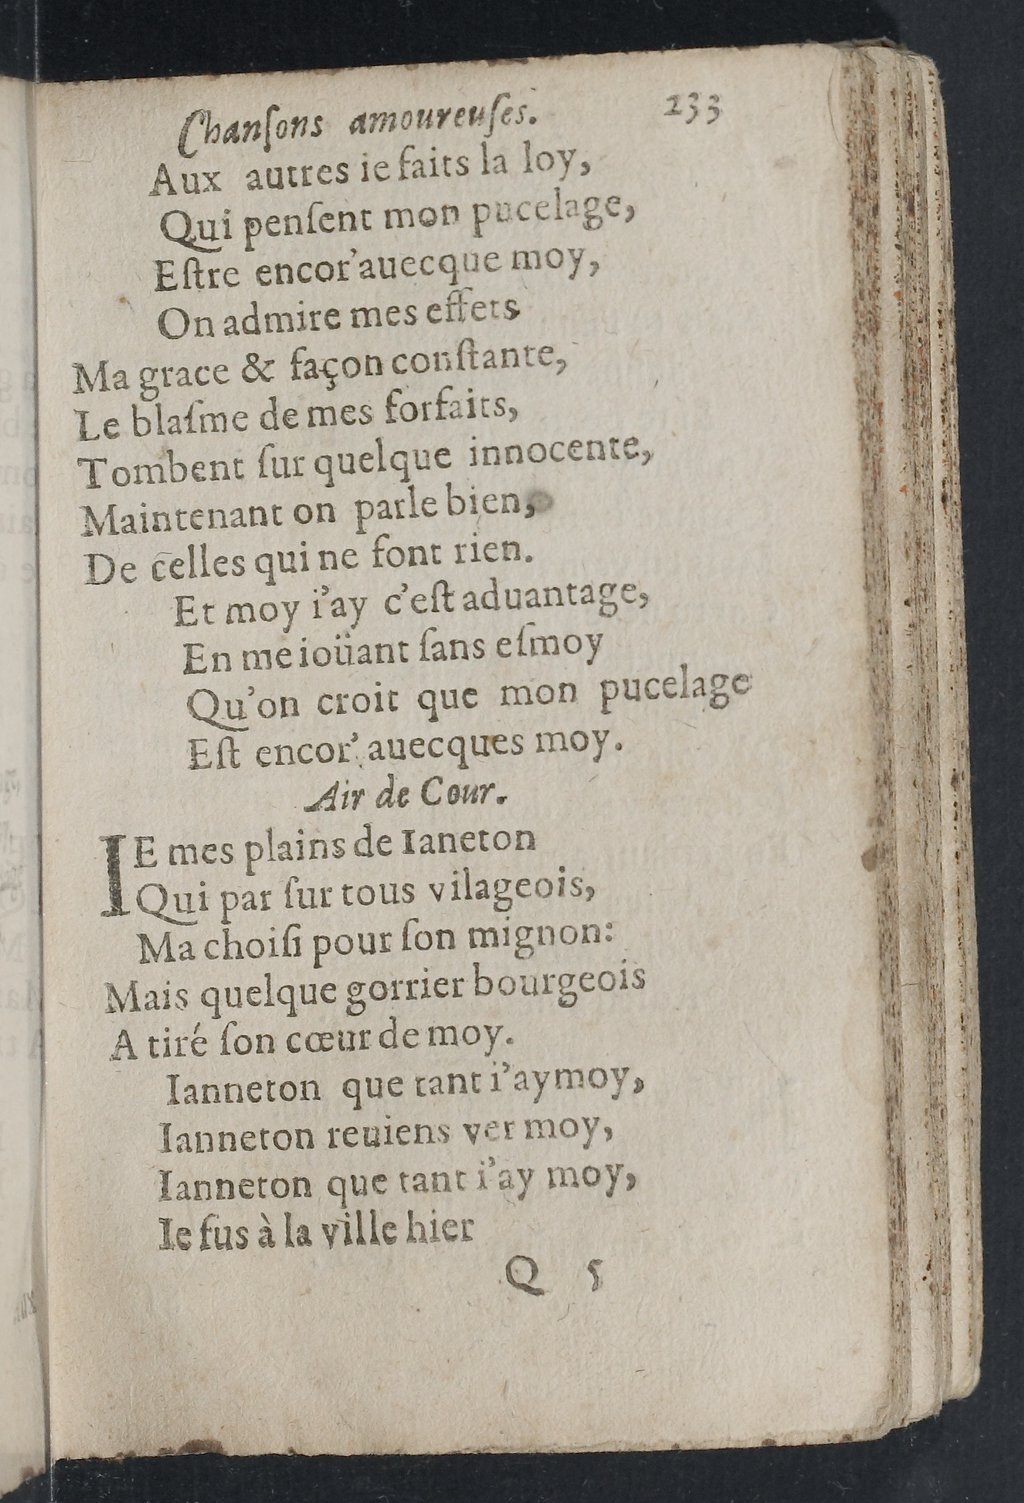 Chanſons amoureuſes. 233
Aux autres ie faits la loy,
Qui penſent mon pucelage,
Eſtre encor'auecque moy,
On admire mes effets
Ma grace & façon conſtante,
Le blaſme de mes forfaits,
Tombent ſur quelque innocente,
Maintenant on parle bien,
De celles qui ne font rien.
Et moy i'ay c'eſt aduantage,
En me ioüant ſans eſmoy
Qu'on croit que mon pucelage
Eſt encor' auecques moy.
Air de Cour.
IE mes plains de Ianeton
Qui par ſur tous vilageois,
Ma choiſi pour ſon mignon:
Mais quelque gorrier bourgeois
A tiré ſon cœur de moy.
Ianneton que tant i'aymoy,
Ianneton reuiens ver moy,
Ianneton que tant i'ay moy,
Ie fus à la ville hier
Q 5